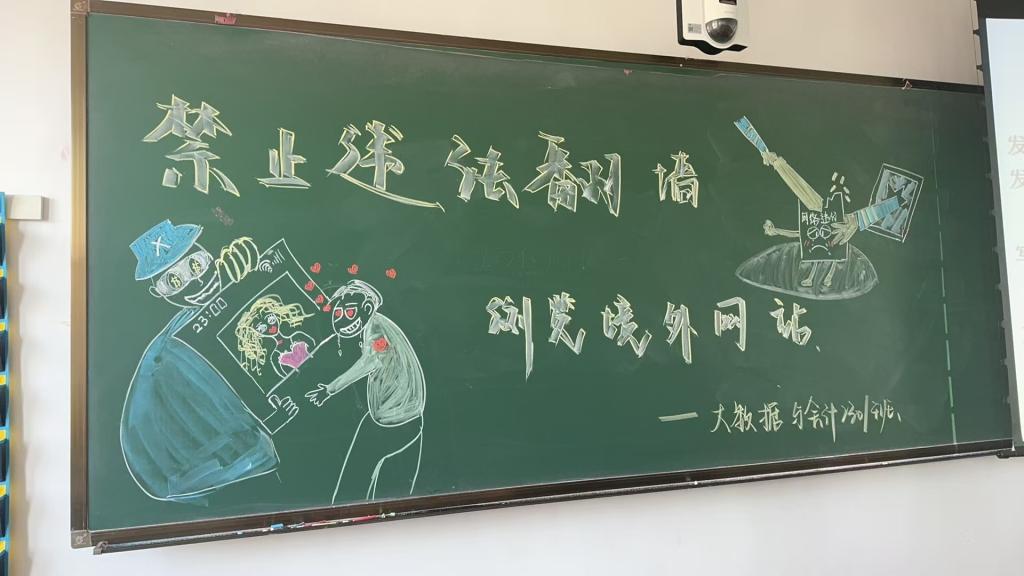 禁止违法翻墙
浏览境外网站
23:00
网络违法
— 大数据与会计2301班
发
发
写